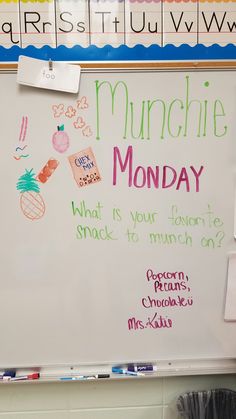 Rr Ss Tt Uu Vv Ww
too
Munchie
CHEX
MIX
Monday
What is your favorite
snack to munch on?
Popcorn,
Pecans,
Chocolate
Mrs. Katie